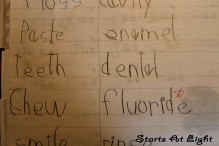 Floss cavity
Paste enamel
Teeth dental
Chew fluoride
smile
Starts At Eight